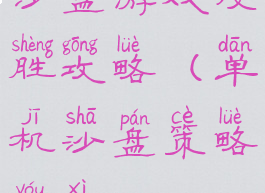 沙盘游戏
shèng gōng lüè dān
胜攻略（单
jī shā pán cè lüè
机沙盘策略
yóu xì